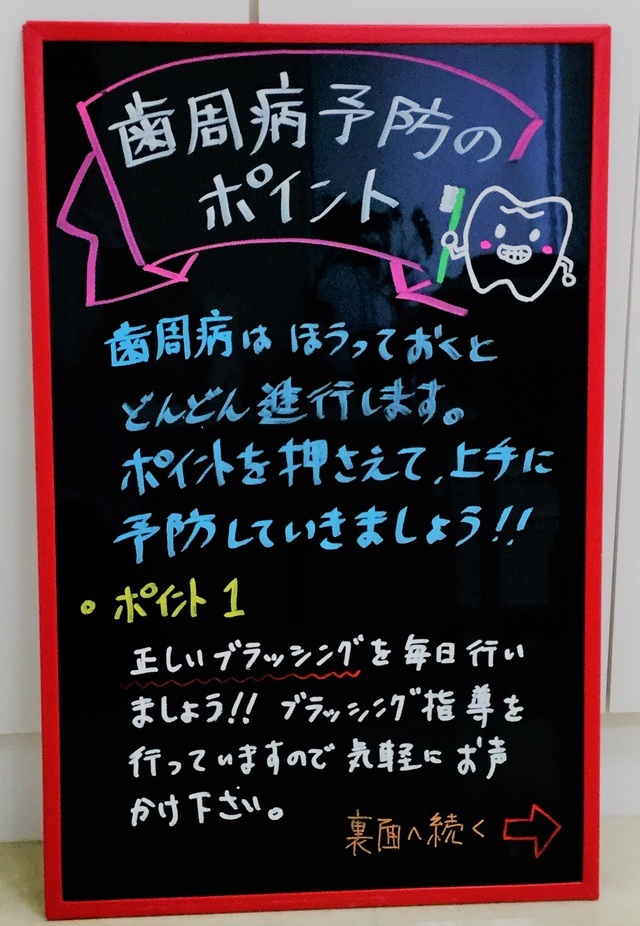 歯周病予防の
ポイント
歯周病は ほうっておくと
どんどん進行します。
ポイントを押さえて、上手に
予防していきましょう!!
• ポイント1
正しいブラッシングを毎日行い
ましょう!! ブラッシング指導を
行っていますので気軽にお声
かけ下さい。
裏面へ続く